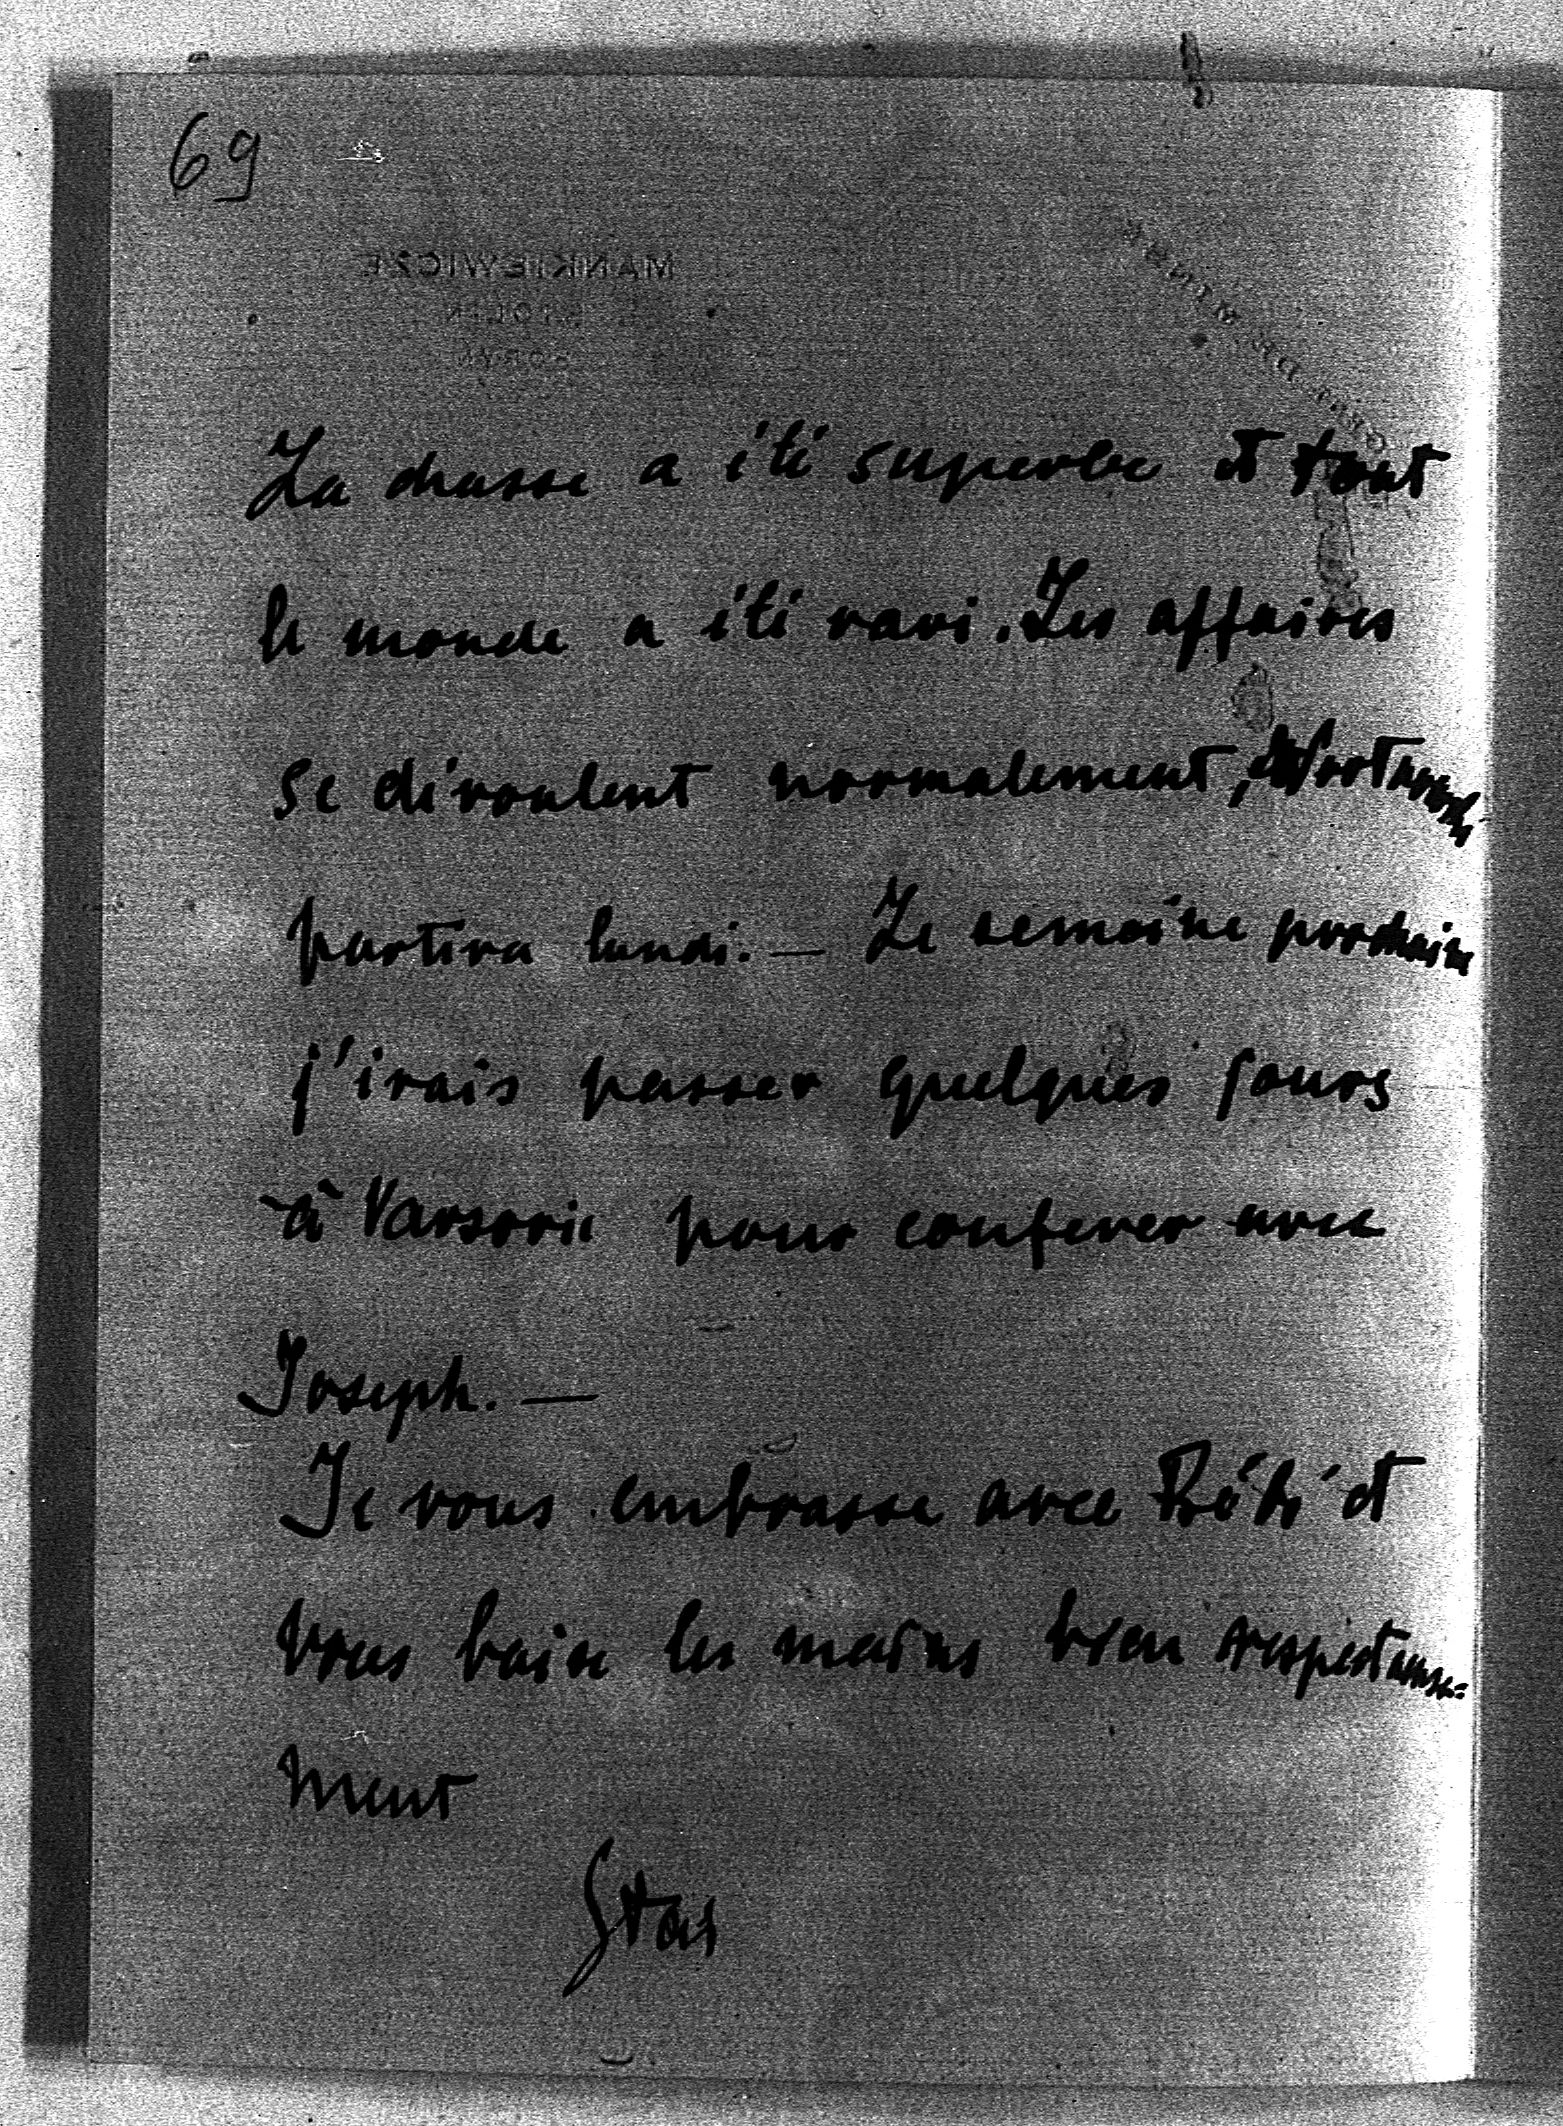 69
MANKIEWICZE
STOLIN
HORYŃ
La chasse a été superbe et tout
le monde a été ravi. Les affaires
se déroulent normalement,
partira lundi. — Le semaine prochaine
j'irais passer quelques jours
à Varsovie pour conferer avec
Joseph. —
Je vous embrasse avec et
vous baise les mains bien respectueuse=
ment
Stas